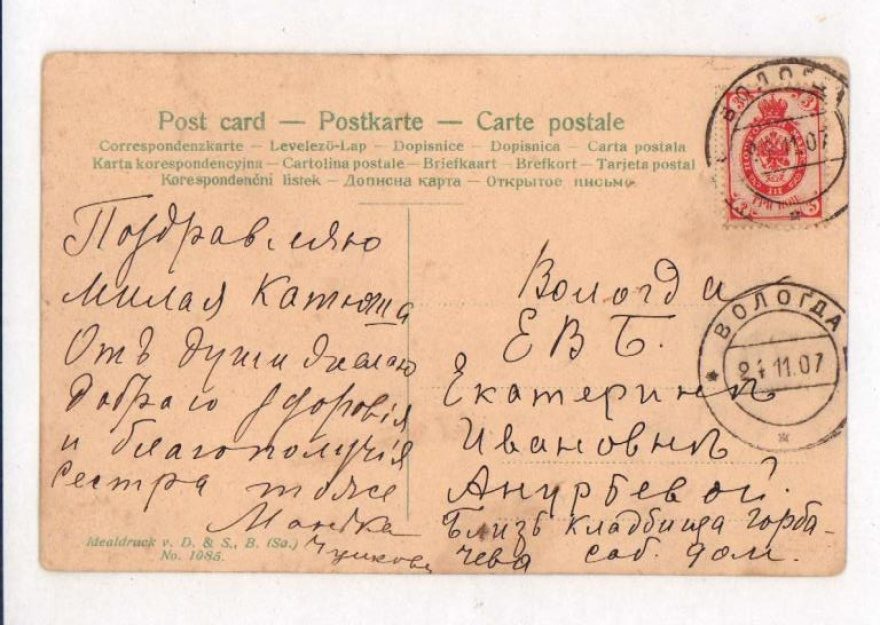 Post card — Postkarte — Carte postale
Correspondenzkarte – Levelező-Lap – Dopisnice – Dopisnica – Carta postala
Karta korespondencyjna – Cartolina postale – Briefkaart – Brefkort – Tarjeta postal
Korespondenční listek – Дописна карта – Открытое письмо
Поздравляю
милая Катюша
Отъ души желаю
добраго здоровія
и благополучія
сестра тоже
Idealdruck v. D. & S., B. (Sa.)
No. 1085.
ВОЛОГДА
11.07
ТРИ КОП
Вологда
ЕВБ.
Екатеринѣ
Ивановнѣ
Близъ кладбища Горба-
чева соб. дом.
ВОЛОГДА
21 11.07